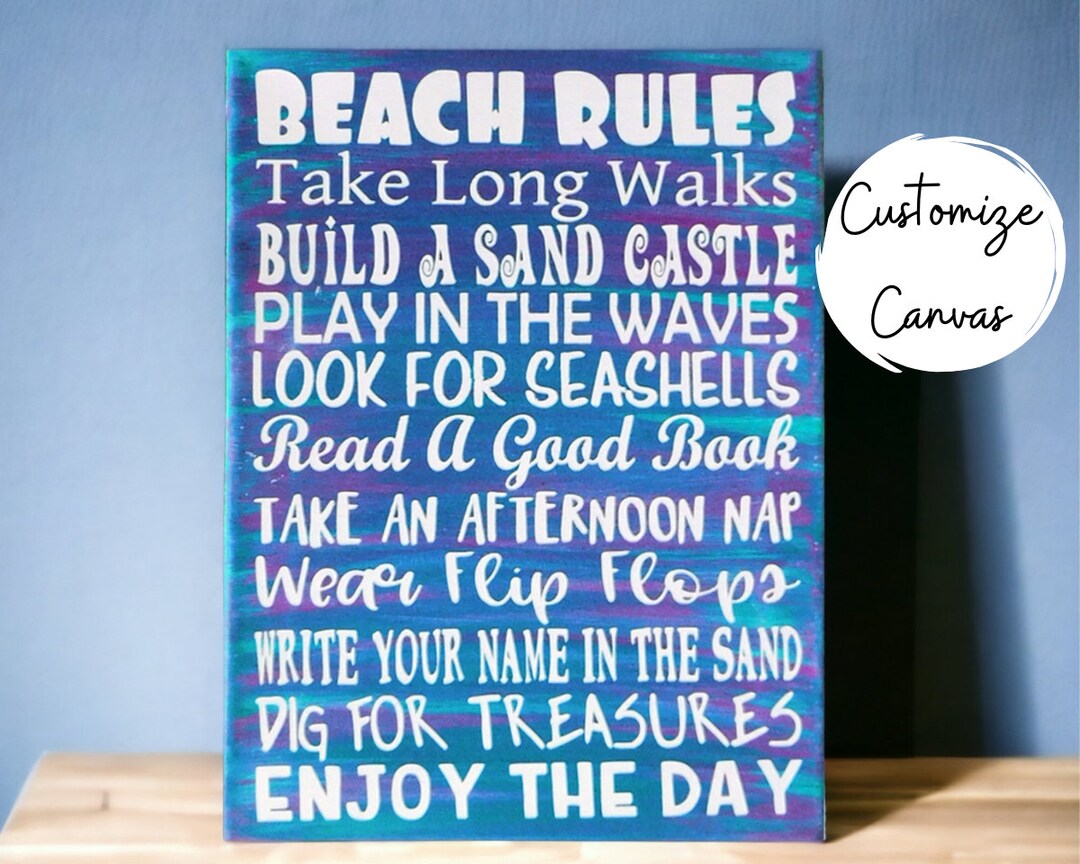 BEACH RULES
Take Long Walks
BUiLD A SAND CASTLE
PLAY IN THE WAVES
LOOK FOR SEASHELLS
Read A Good Book
TAKE AN AFTERNOON NAP
Wear Flip Flops
WRITE YOUR NAME IN THE SAND
DIG FOR TREASURES
ENJOY THE DAY
Customize
Canvas